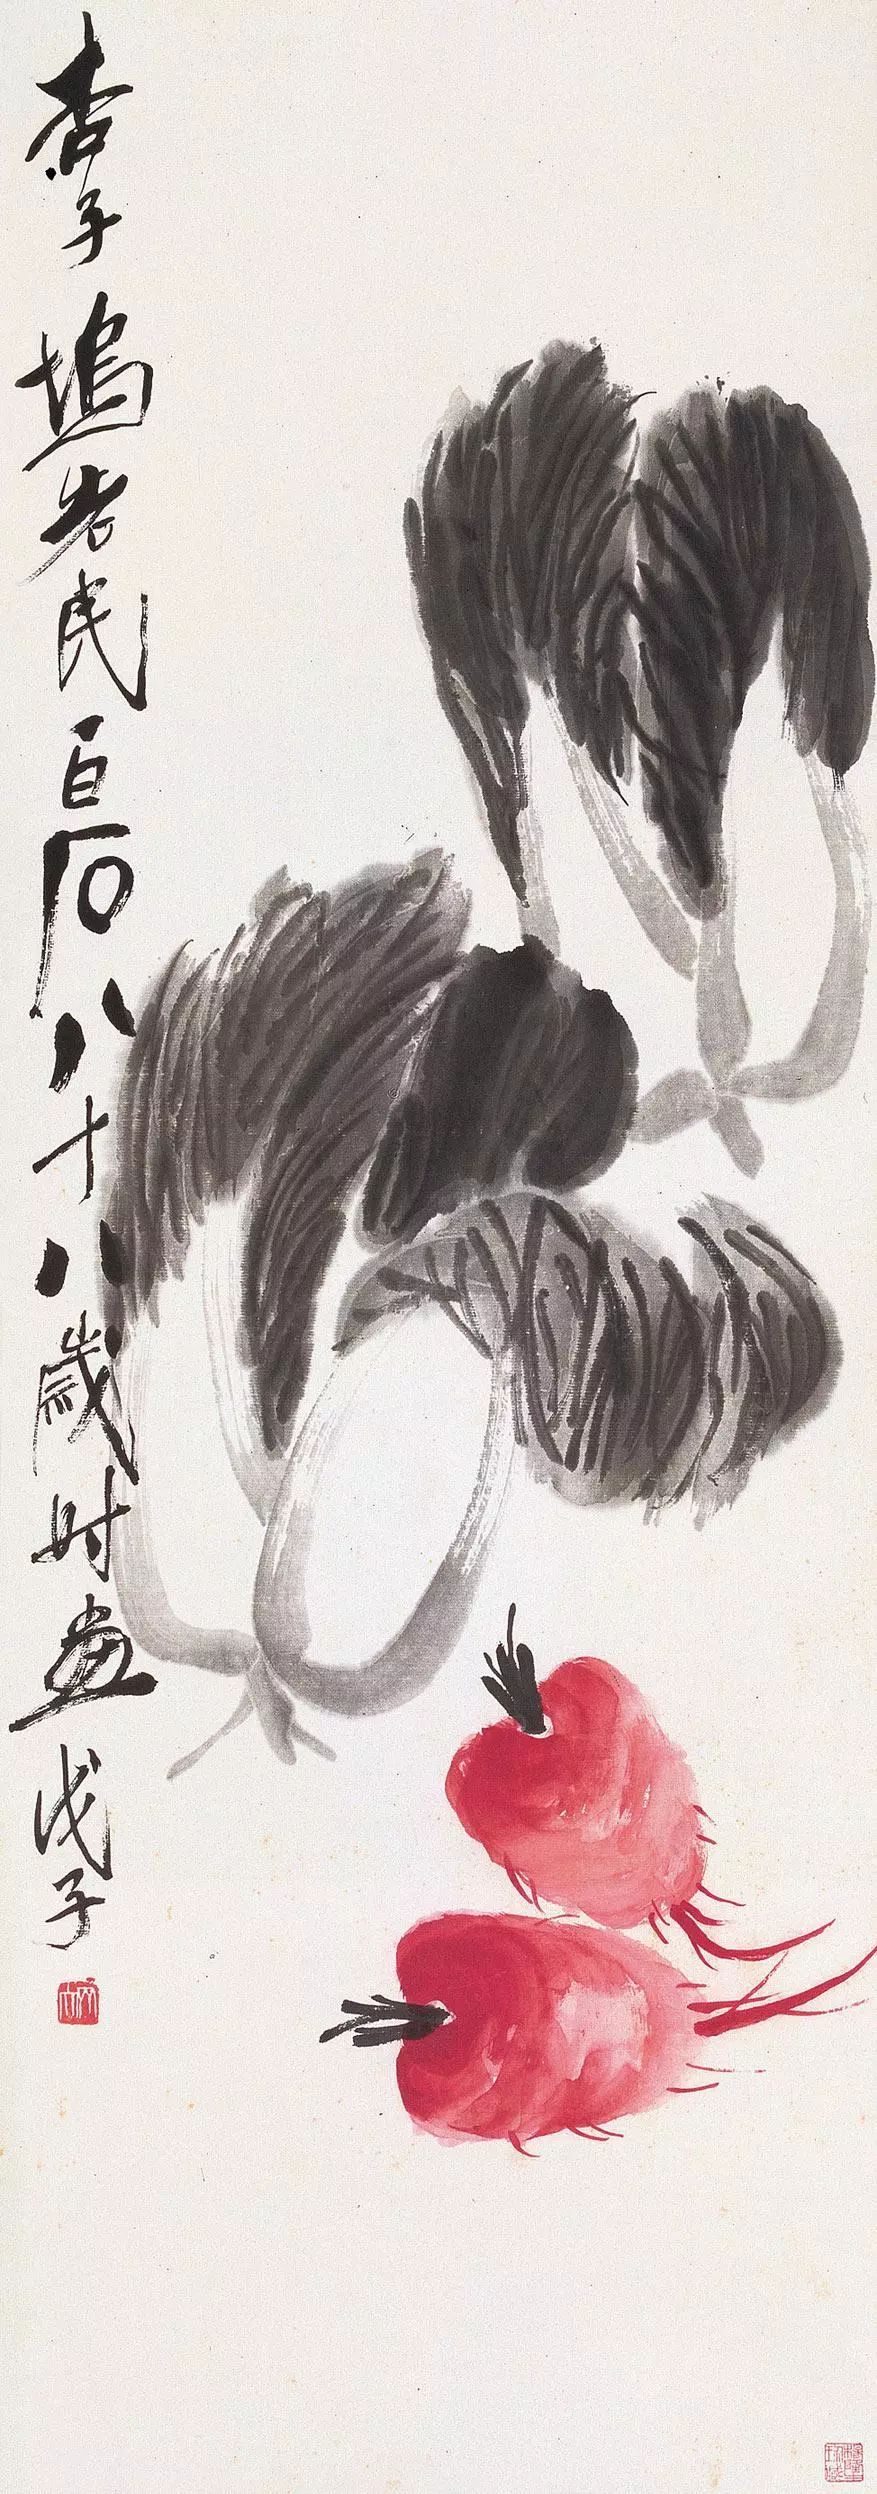 杏子坞老民白石八十八歲时画戊子